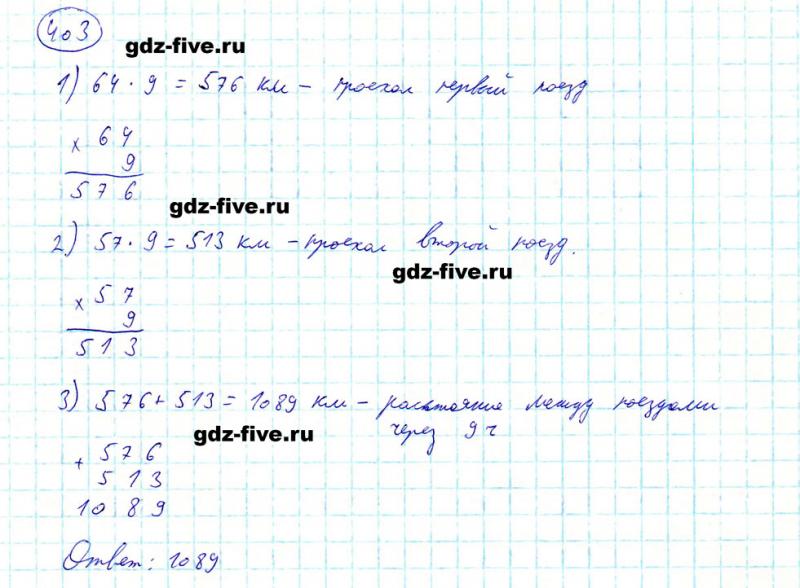 403
gdz-five.ru
1) 64 · 9 = 576 км – проехал первый поезд
× 64
9
576
gdz-five.ru
2) 57 · 9 = 513 км – проехал второй поезд.
gdz-five.ru
× 57
9
513
3) 576 + 513 = 1089 км – расстояние между поездами
через 9 ч
gdz-five.ru
+ 576
513
1089
Ответ: 1089